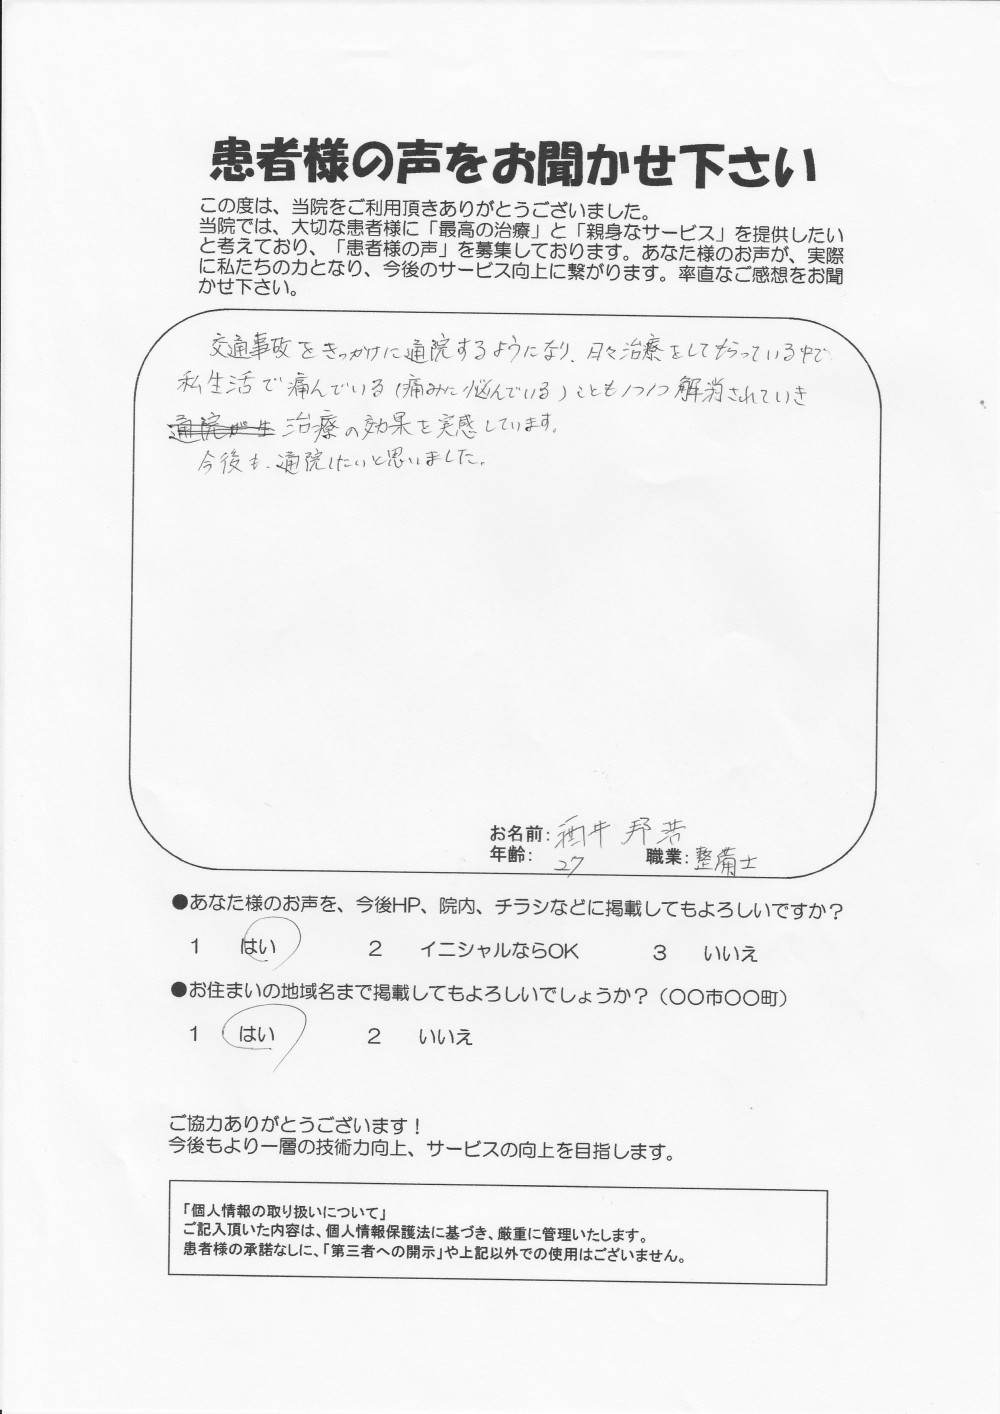 患者様の声をお聞かせ下さい
この度は、当院をご利用頂きありがとうございました。
当院では、大切な患者様に「最高の治療」と「親身なサービス」を提供したい
と考えており、「患者様の声」を募集しております。あなた様のお声が、実際
に私たちの力となり、今後のサービス向上に繋がります。率直なご感想をお聞
かせ下さい。
交通事故をきっかけに通院するようになり、日々治療をしてもらっている中で
私生活で痛んでいる(痛みに悩んでいる)ことも1つ1つ解消されていき
通院が生 治療の効果を実感しています。
今後も、通院したいと思いました。
お名前: 酒井 邦浩
年齢: 27 職業: 整備士
●あなた様のお声を、今後HP、院内、チラシなどに掲載してもよろしいですか?
1 はい 2 イニシャルならOK 3 いいえ
●お住まいの地域名まで掲載してもよろしいでしょうか?(〇〇市〇〇町)
1 はい 2 いいえ
ご協力ありがとうございます!
今後もより一層の技術力向上、サービスの向上を目指します。
「個人情報の取り扱いについて」
ご記入頂いた内容は、個人情報保護法に基づき、厳重に管理いたします。
患者様の承諾なしに、「第三者への開示」や上記以外での使用はございません。